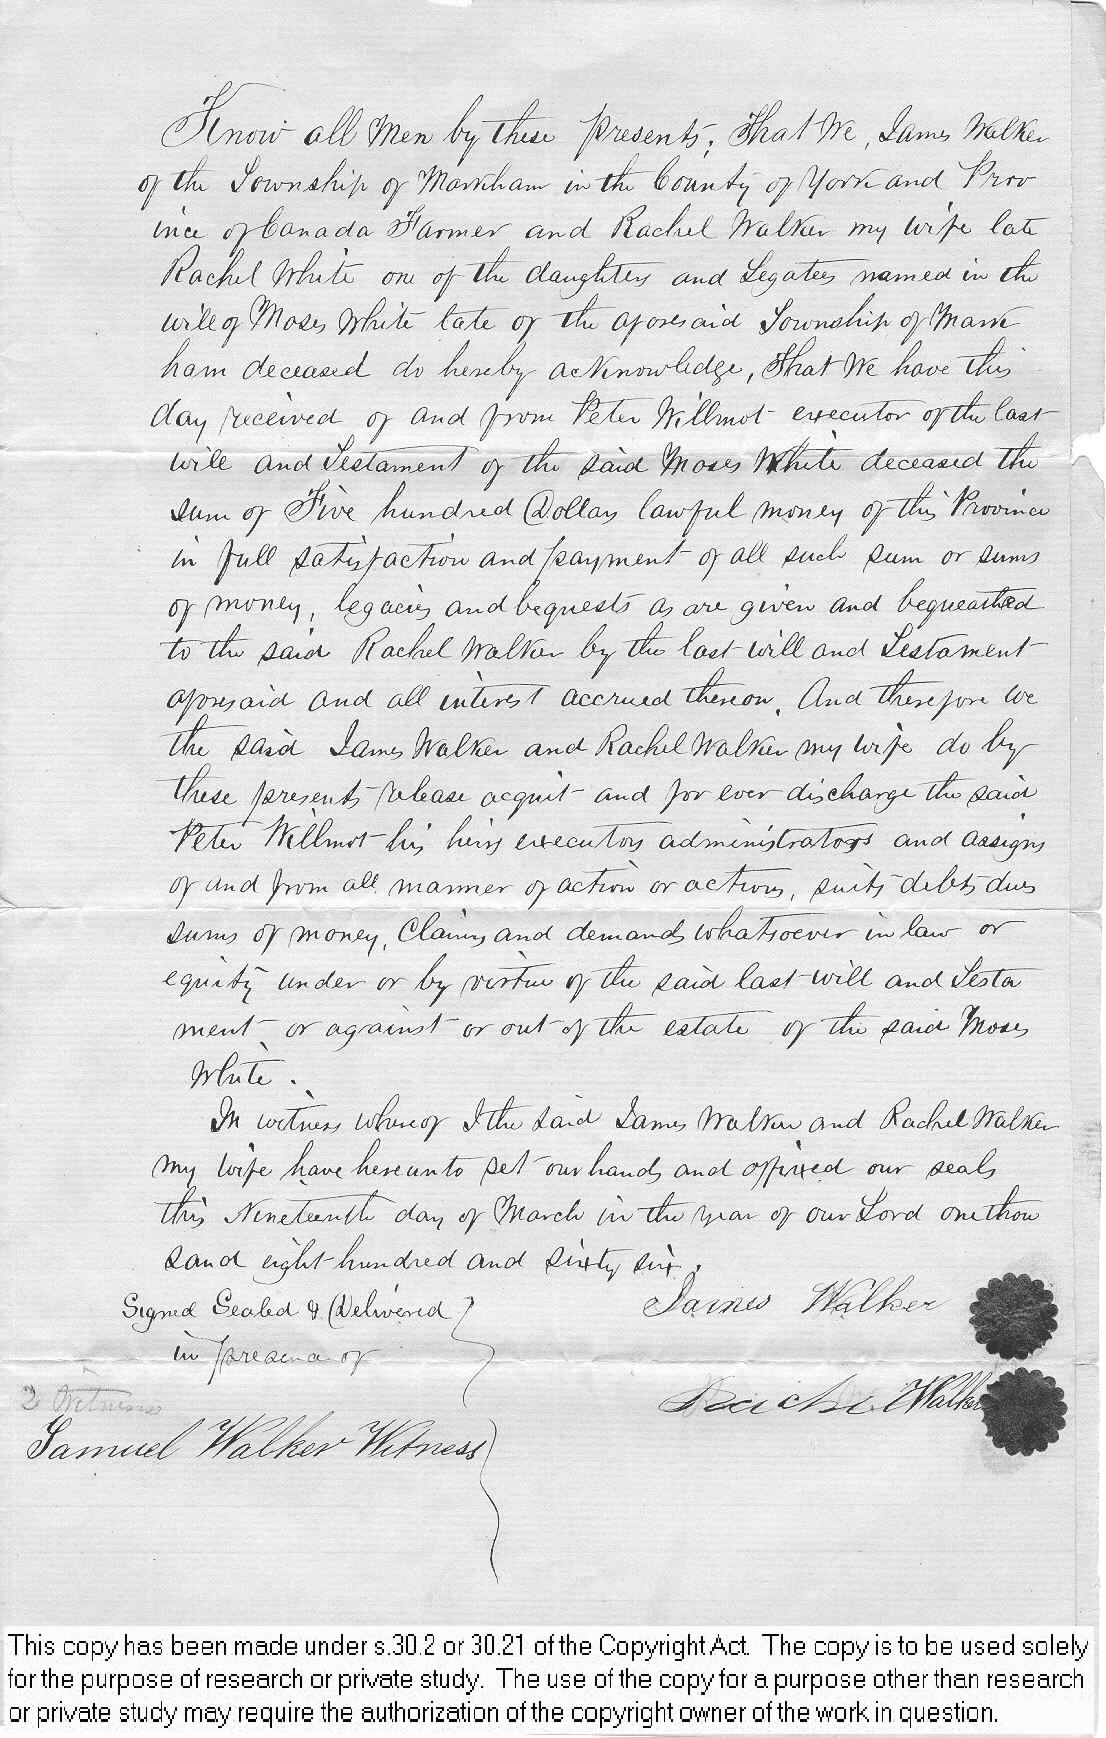 Know all Men by these presents; That We, James Walker
of the Township of Markham in the County of York and Prov
ince of Canada Farmer and Rachel Walker my wife late
Rachel White one of the daughters and Legatees named in the
will of Moses White late of the aforesaid Township of Mark
ham deceased do hereby acknowledge, That We have this
day received of and from Peter Willmot executor of the last
will and Testament of the said Moses White deceased the
sum of Five hundred Dollars lawful money of this Province
in full satisfaction and payment of all such sum or sums
of money, legacies and bequests as are given and bequeathed
to the said Rachel Walker by the last will and Testament
aforesaid and all interest accrued thereon. And therefore we
the said James Walker and Rachel Walker my wife do by
these presents release acquit and for ever discharge the said
Peter Willmot his heirs executors administrators and assigns
of and from all manner of action or actions, suits debts dues
sums of money, Claims and demands whatsoever in law or
equity under or by virtue of the said last will and Testa
ment or against or out of the estate of the said Moses
White.
In witness whereof I the said James Walker and Rachel Walker
my wife have hereunto set our hands and affixed our seals
this Nineteenth day of March in the year of our Lord one thou
sand eight hundred and sixty six.
Signed Sealed & Delivered
in presence of
James Walker
Rachel Walker
2 Witness
Samuel Walker Witness
This copy has been made under s.30.2 or 30.21 of the Copyright Act. The copy is to be used solely
for the purpose of research or private study. The use of the copy for a purpose other than research
or private study may require the authorization of the copyright owner of the work in question.